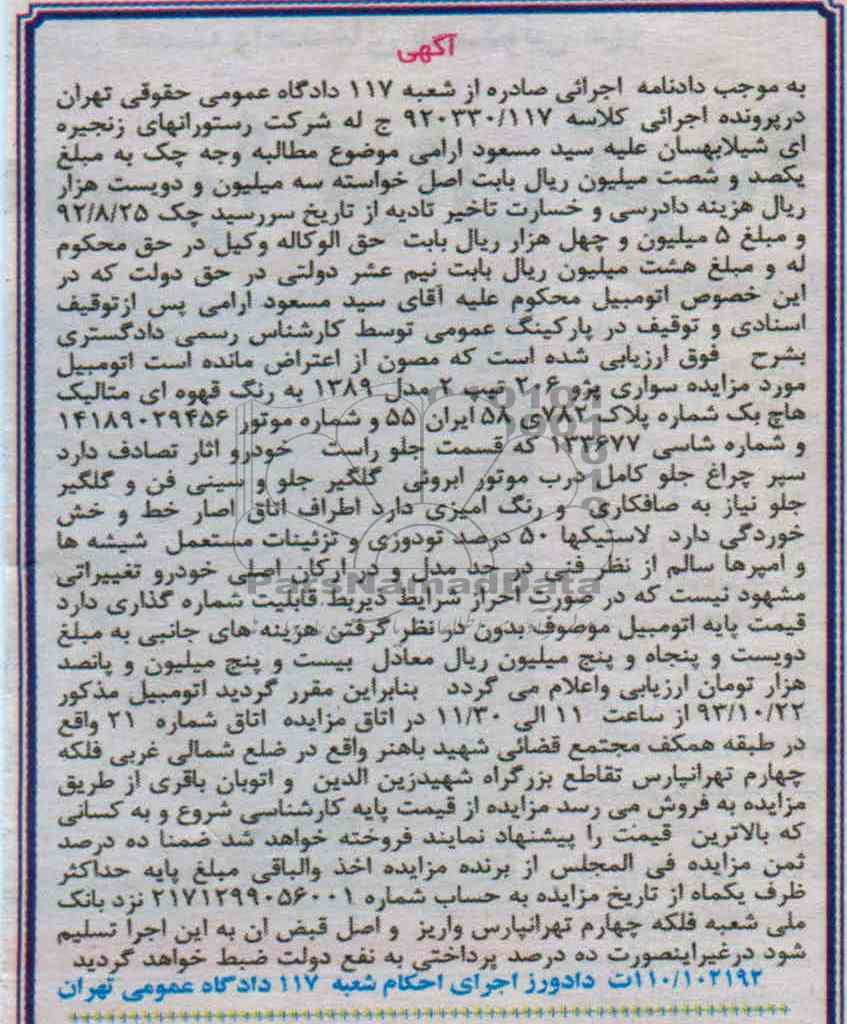 آگهی
به موجب دادنامه اجرائی صادره از شعبه ۱۱۷ دادگاه عمومی حقوقی تهران
درپرونده اجرائی کلاسه ۹۲۰۳۳۰/۱۱۷ ج له شرکت رستورانهای زنجیره
ای شیلابهسان علیه سید مسعود ارامی موضوع مطالبه وجه چک به مبلغ
یکصد و شصت میلیون ریال بابت اصل خواسته سه میلیون و دویست هزار
ریال هزینه دادرسی و خسارت تاخیر تادیه از تاریخ سررسید چک ۹۲/۸/۲۵
و مبلغ ۵ میلیون و چهل هزار ریال بابت حق الوکاله وکیل در حق محکوم
له و مبلغ هشت میلیون ریال بابت نیم عشر دولتی در حق دولت که در
این خصوص اتومبیل محکوم علیه آقای سید مسعود ارامی پس ازتوقیف
اسنادی و توقیف در پارکینگ عمومی توسط کارشناس رسمی دادگستری
بشرح فوق ارزیابی شده است که مصون از اعتراض مانده است اتومبیل
مورد مزایده سواری پژو ۲۰۶ تیپ ۲ مدل ۱۳۸۹ به رنگ قهوه ای متالیک
هاچ بک شماره پلاک ۷۸۲ی ۵۸ ایران ۵۵ و شماره موتور ۱۴۱۸۹۰۲۹۴۵۶
و شماره شاسی ۱۳۳۶۷۷ که قسمت جلو راست خودرو اثار تصادف دارد
سپر چراغ جلو کامل درب موتور ابروئی گلگیر جلو و سینی فن و گلگیر
جلو نیاز به صافکاری و رنگ امیزی دارد اطراف اتاق اصار خط و خش
خوردگی دارد لاستیکها ۵۰ درصد تودوزی و تزئینات مستعمل شیشه ها
و امپرها سالم از نظر فنی در حد مدل و در ارکان اصلی خودرو تغییراتی
مشهود نیست که در صورت احراز شرایط ذیربط قابلیت شماره گذاری دارد
قیمت پایه اتومبیل موصوف بدون در نظر گرفتن هزینه های جانبی به مبلغ
دویست و پنجاه و پنج میلیون ریال معادل بیست و پنج میلیون و پانصد
هزار تومان ارزیابی واعلام می گردد بنابراین مقرر گردید اتومبیل مذکور
۹۳/۱۰/۲۲ از ساعت ۱۱ الی ۱۱/۳۰ در اتاق مزایده اتاق شماره ۲۱ واقع
در طبقه همکف مجتمع قضائی شهید باهنر واقع در ضلع شمالی غربی فلکه
چهارم تهرانپارس تقاطع بزرگراه شهیدزین الدین و اتوبان باقری از طریق
مزایده به فروش می رسد مزایده از قیمت پایه کارشناسی شروع و به کسانی
که بالاترین قیمت را پیشنهاد نمایند فروخته خواهد شد ضمنا ده درصد
ثمن مزایده فی المجلس از برنده مزایده اخذ والباقی مبلغ پایه حداکثر
ظرف یکماه از تاریخ مزایده به حساب شماره ۲۱۷۱۲۹۹۰۵۶۰۰۱ نزد بانک
ملی شعبه فلکه چهارم تهرانپارس واریز و اصل قبض ان به این اجرا تسلیم
شود درغیراینصورت ده درصد پرداختی به نفع دولت ضبط خواهد گردید
۱۱۰/۱۰۲۱۹۲ت دادورز اجرای احکام شعبه ۱۱۷ دادگاه عمومی تهران
ParsNamadData